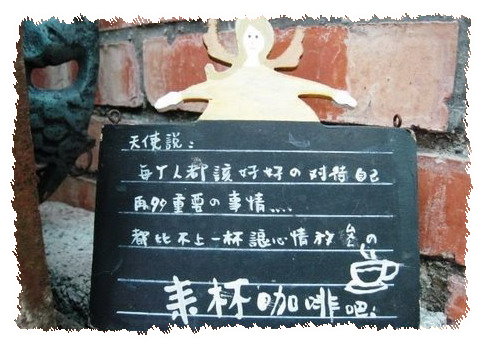 天使説：
每个人都該好好の対待自己
再多重要の事情....
都比不上一杯讓心情放鬆の
来杯咖啡吧!